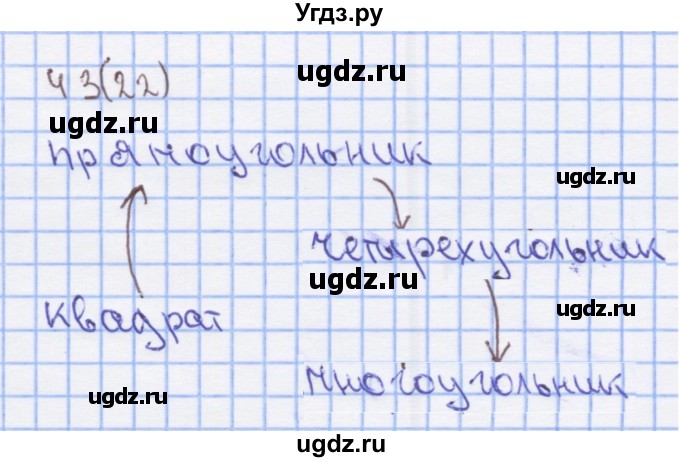 Угдз.ру
43(22)
ugdz.ru
ugdz.ru
прямоугольник
ugdz.ru
четырехугольник
квадрат
ugdz.ru
многоугольник
ugdz.ru
ugdz.ru
ugdz.ru